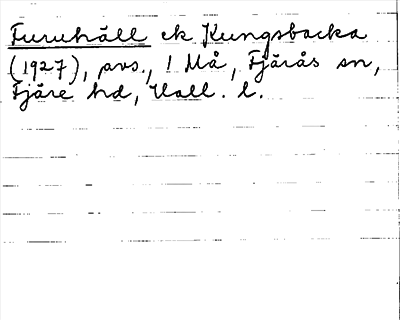 Furuhäll ek Kungsbacka
(1927), avs., 1 Må, Fjärås sn,
Fjäre hd, Hall. l.